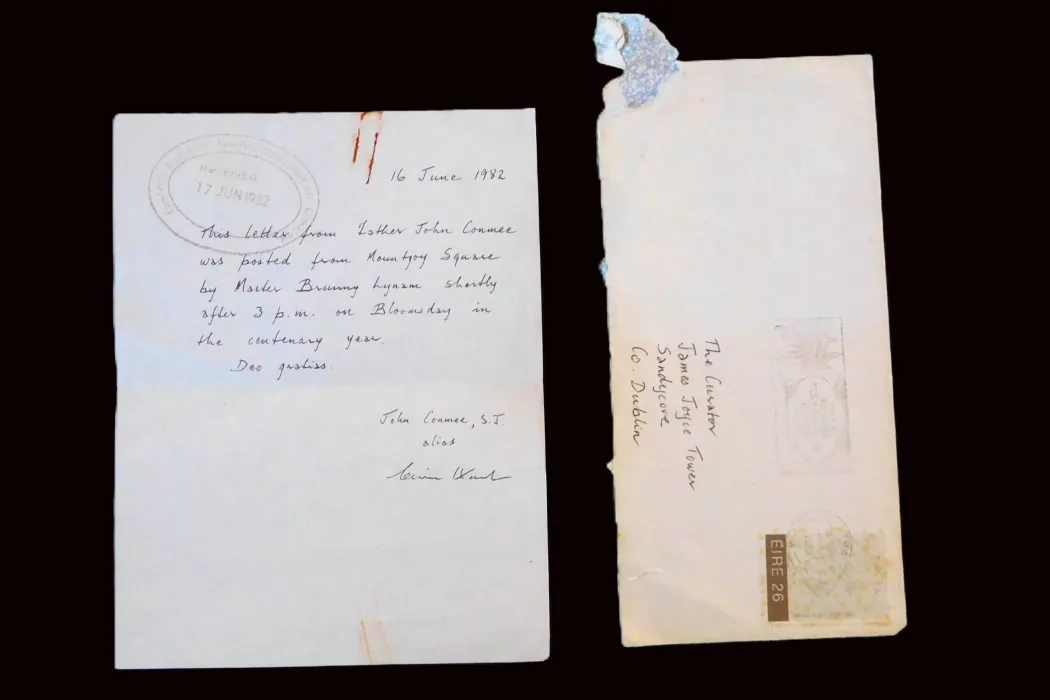 RECEIVED
17 JUN 1982
16 June 1982
This letter from Father John Conmee
was posted from Mountjoy Square
by Master Brunny Lynam shortly
after 3 p.m. on Bloomsday in
the centenary year.
Deo gratias.
John Conmee, S.J.
alias
The Curator
James Joyce Tower
Sandycove
Co. Dublin
EIRE 26